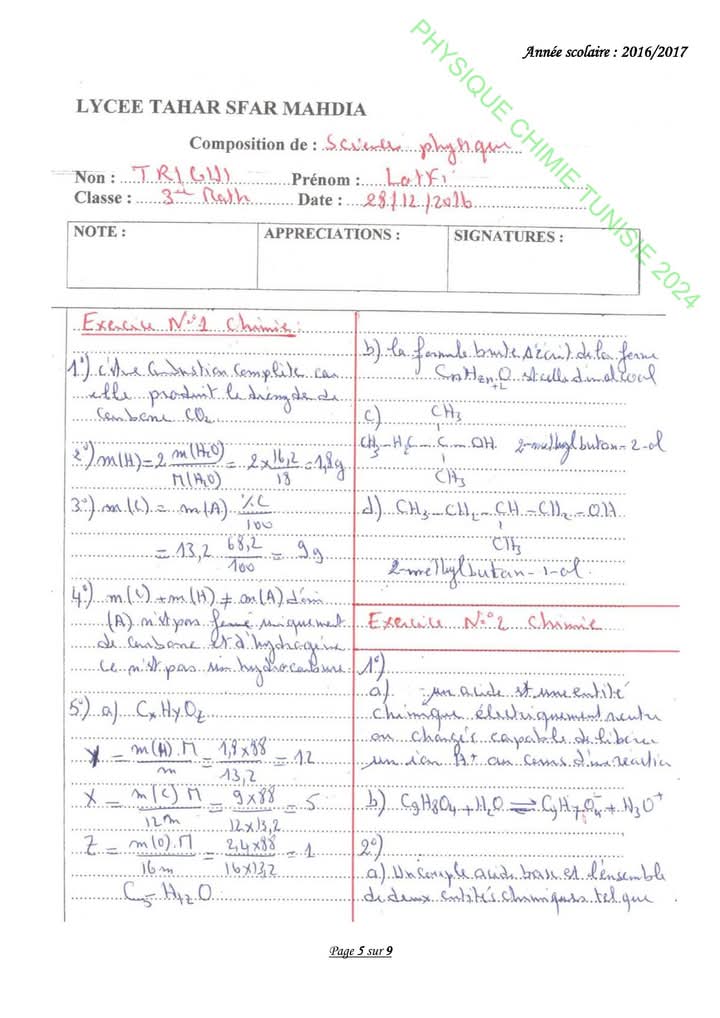 Année scolaire : 2016/2017
PHYSIQUE CHIMIE TUNISIE 2024
LYCEE TAHAR SFAR MAHDIA
Composition de : Sciences physique
Non : TRIGUI Prénom : Lotfi
Classe : 3ème Math Date : 28/12/2016
NOTE : APPRECIATIONS : SIGNATURES :
Exercice N°1 Chimie :
1°) c'est une combustion complète car
elle produit le dioxyde de
carbone CO2
2°) m(H) = 2 m(H2O)/M(H2O) = 2x16,2/18 = 1,8g
3°) m(C) = m(A) %C/100
= 13,2 68,2/100 = 9g
4°) m(C) + m(H) ≠ m(A) d'où
(A) n'est pas formé uniquement
de carbone et d'hydrogène
ce n'est pas un hydrocarbure
5°) a) CxHyOz
Y = m(H).M/m = 1,8x88/13,2 = 12
X = m(C) M/12m = 9x88/12x13,2 = 5
Z = m(O).M/16m = 2,4x88/16x13,2 = 1
C5H12O
b) la formule brute s'écrit de la forme
CnH2n+2O et celle d'un alcool
c) CH3
CH3-H2C-C-OH 2-methylbutan-2-ol
CH3
d) CH3-CH2-CH-CH2-OH
CH3
2-methylbutan-1-ol
Exercice N°2 Chimie
1°)
a) un acide est une entité
chimique électriquement neutre
ou chargée capable de libérer
un ion H+ au cours d'une réaction
b) C9H8O4 + H2O ⇌ C9H7O4- + H3O+
2°)
a) Un couple acide base est l'ensemble
de deux entités chimiques tel que
Page 5 sur 9